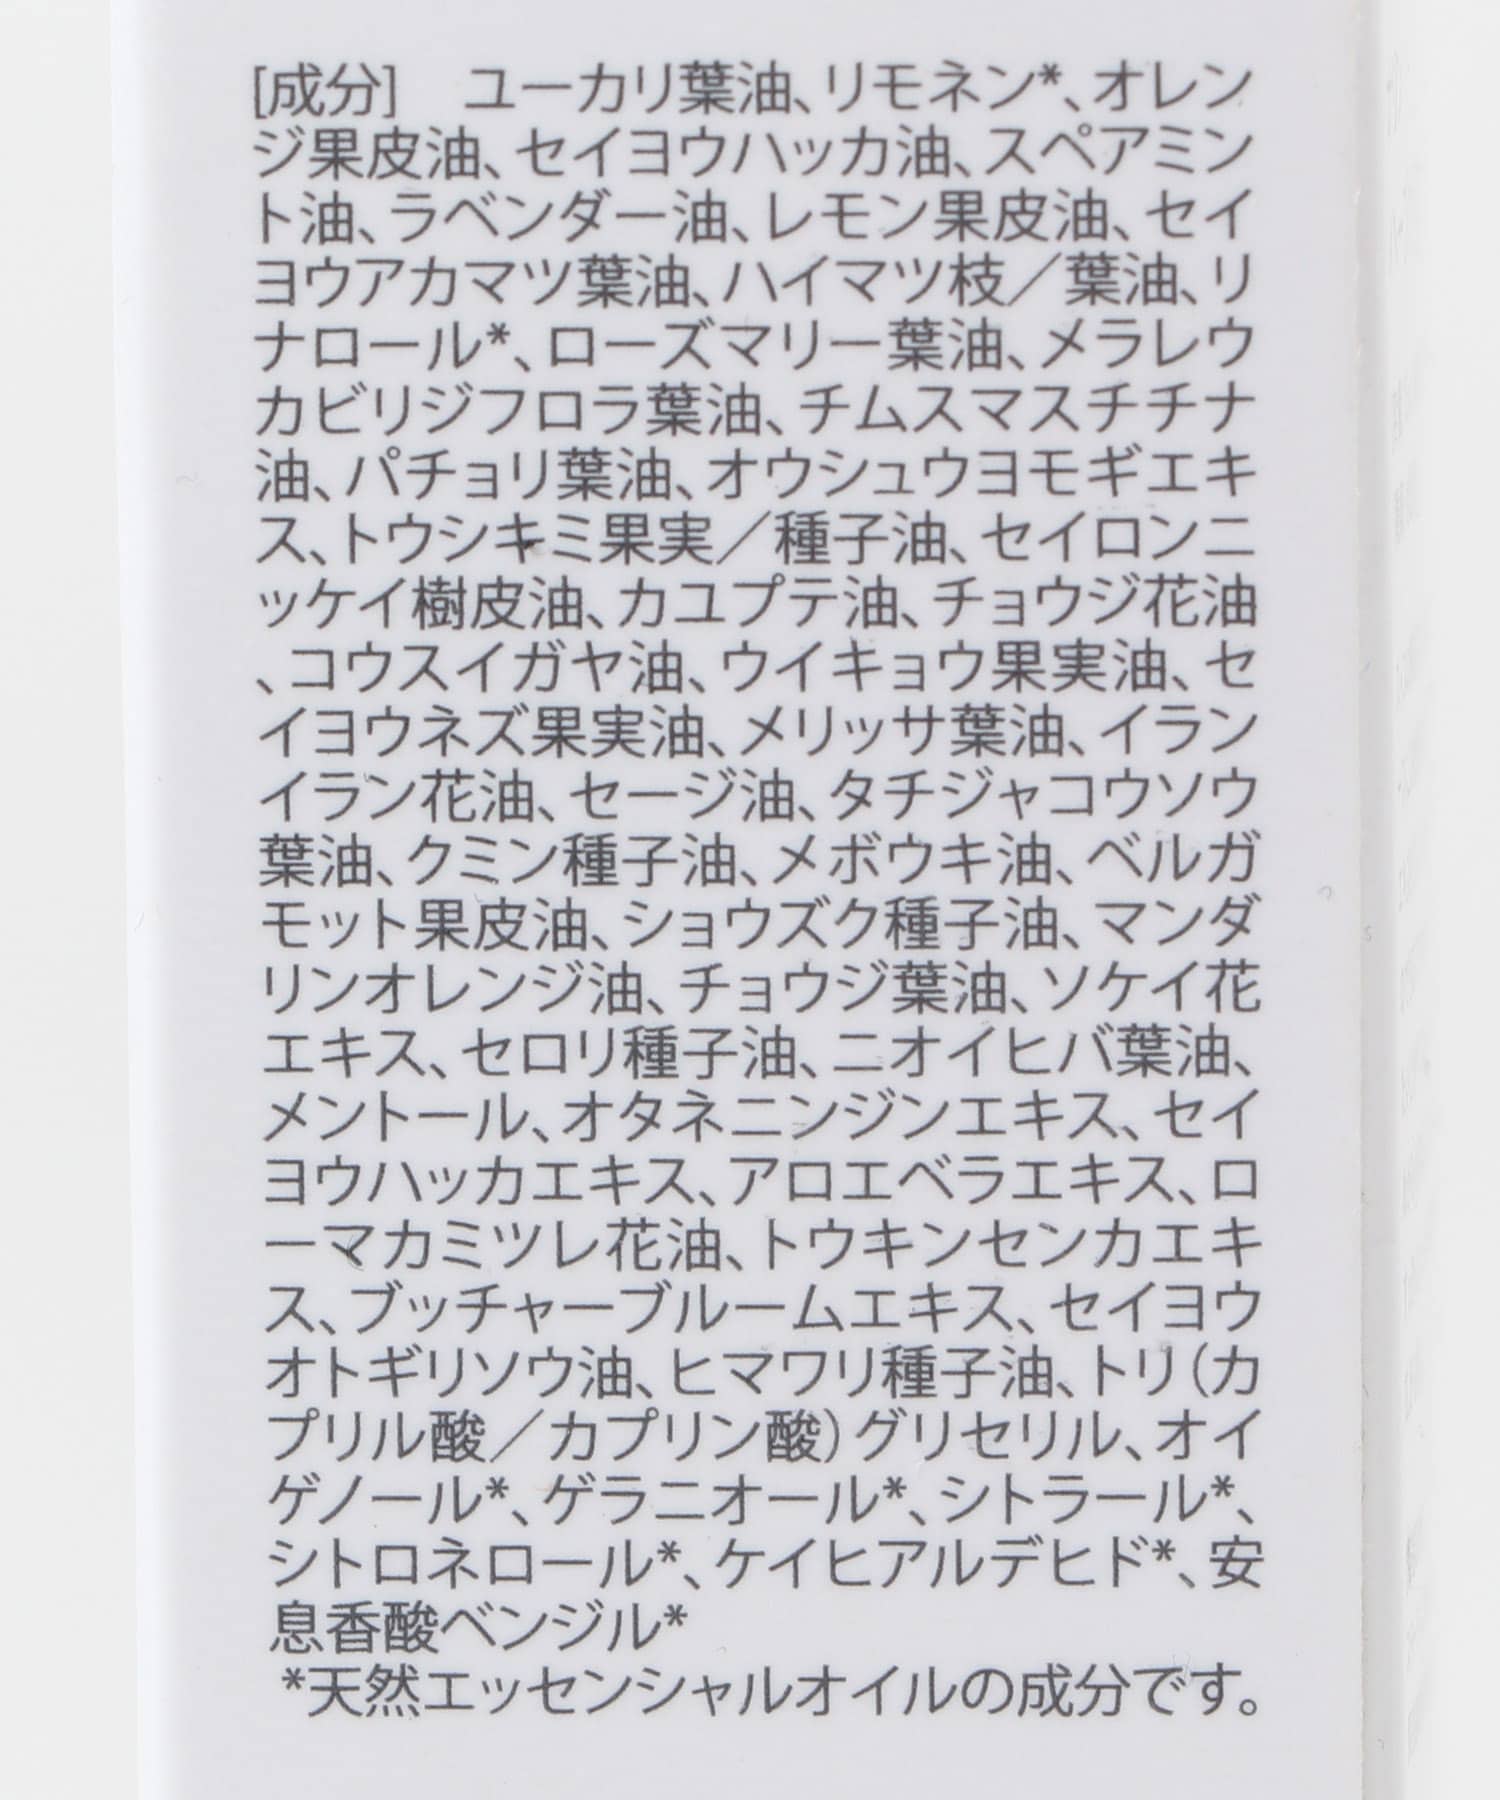 [成分]　ユーカリ葉油、リモネン*、オレン
ジ果皮油、セイヨウハッカ油、スペアミン
ト油、ラベンダー油、レモン果皮油、セイ
ヨウアカマツ葉油、ハイマツ枝／葉油、リ
ナロール*、ローズマリー葉油、メラレウ
カビリジフロラ葉油、チムスマスチチナ
油、パチョリ葉油、オウシュウヨモギエキ
ス、トウシキミ果実／種子油、セイロンニ
ッケイ樹皮油、カユプテ油、チョウジ花油
、コウスイガヤ油、ウイキョウ果実油、セ
イヨウネズ果実油、メリッサ葉油、イラン
イラン花油、セージ油、タチジャコウソウ
葉油、クミン種子油、メボウキ油、ベルガ
モット果皮油、ショウズク種子油、マンダ
リンオレンジ油、チョウジ葉油、ソケイ花
エキス、セロリ種子油、ニオイヒバ葉油、
メントール、オタネニンジンエキス、セイ
ヨウハッカエキス、アロエベラエキス、ロ
ーマカミツレ花油、トウキンセンカエキ
ス、ブッチャーブルームエキス、セイヨウ
オトギリソウ油、ヒマワリ種子油、トリ（カ
プリル酸／カプリン酸）グリセリル、オイ
ゲノール*、ゲラニオール*、シトラール*、
シトロネロール*、ケイヒアルデヒド*、安
息香酸ベンジル*
*天然エッセンシャルオイルの成分です。